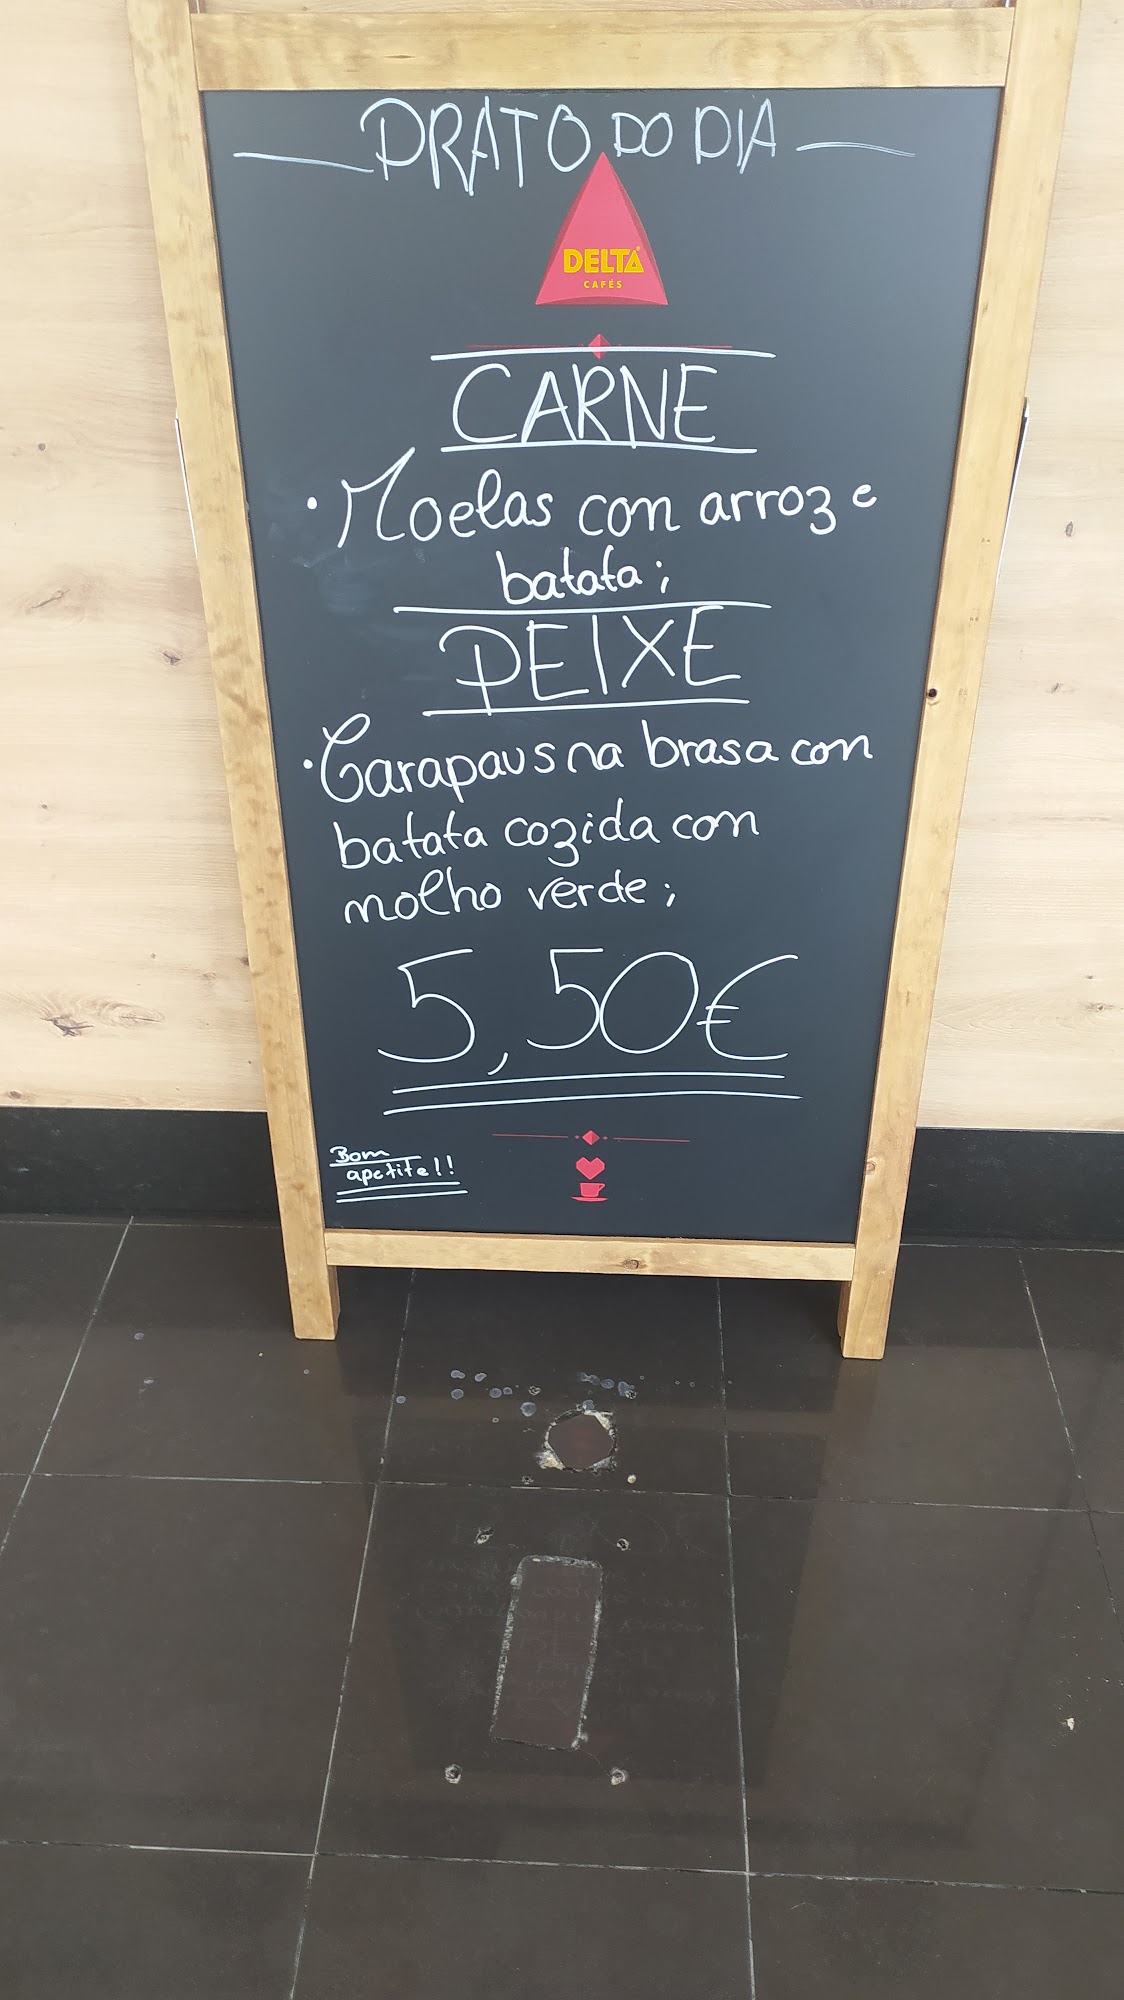 PRATO DO DIA
DELTA
CAFÉS
CARNE
• Moelas con arroz e
batata;
PEIXE
• Carapaus na brasa con
batata cozida con
molho verde;
5,50€
Bom
apetite!!